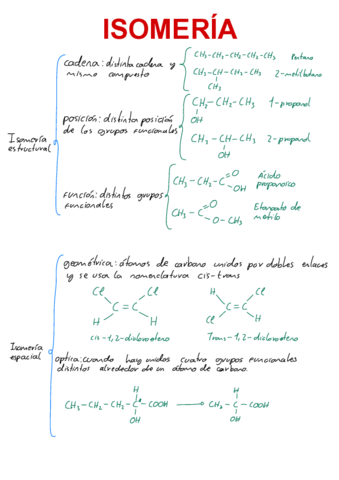 ISOMERÍA
Isomería
estructural
cadena: distinta cadena y
mismo compuesto
CH₃-CH₂-CH₂-CH₂-CH₃ Pentano
CH₃-CH-CH₂-CH₃ 2-metilbutano
CH₃
posición: distinta posición
de los grupos funcionales
CH₂-CH₂-CH₃ 1-propanol
OH
CH₃-CH-CH₃ 2-propanol
OH
función: distintos grupos
funcionales
CH₃-CH₂-C=O Ácido
OH propanoico
CH₃-C=O Etanoato de
O-CH₃ metilo
Isomería
espacial
geométrica: átomos de carbono unidos por dobles enlaces
y se usa la nomenclatura cis-trans
Cl Cl H Cl
C=C C=C
H H Cl H
cis-1,2-dicloroeteno Trans-1,2-dicloroeteno
optica: cuando hay unidos cuatro grupos funcionales
distintos alrededor de un átomo de carbono.
H H
CH₃-CH₂-CH₂-C*-COOH CH₃-C-COOH
OH OH